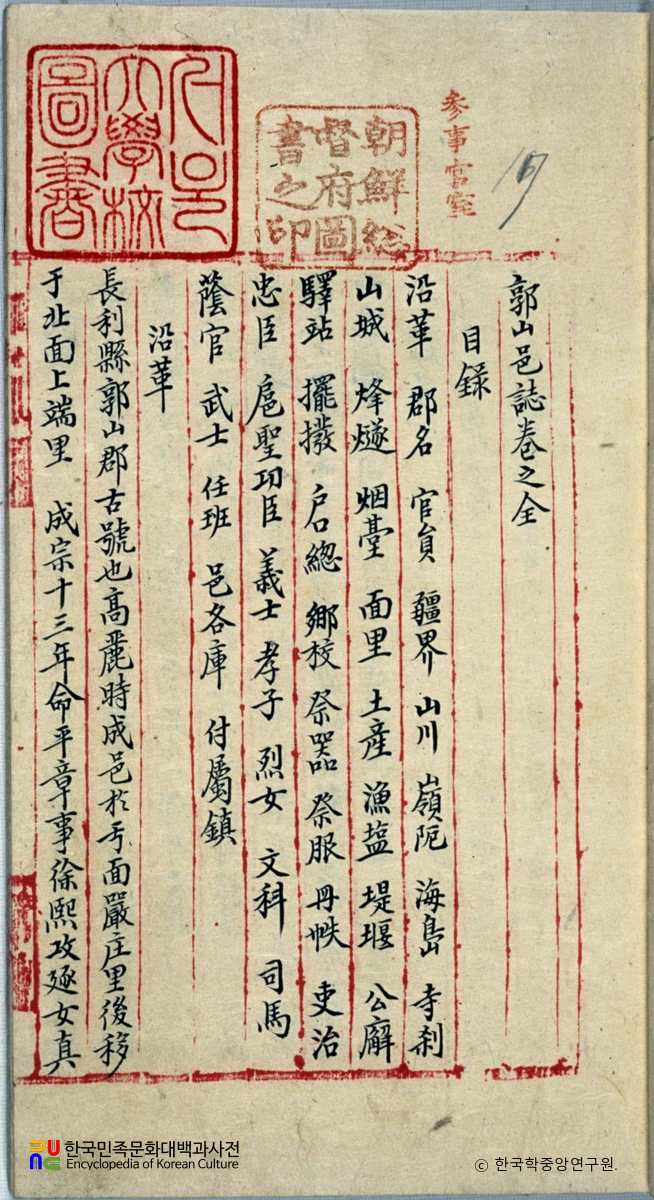 郭山邑誌卷之全
目錄
沿革 郡名 官員 疆界 山川 嶺阨 海島 寺刹
山城 烽燧 烟臺 面里 土産 漁塩 堤堰 公廨
驛站 擺撥 戶總 鄉校 祭器 祭服 冊帙 吏治
忠臣 扈聖功臣 義士 孝子 烈女 文科 司馬
蔭官 武士 任班 邑各庫 付屬鎮
沿革
長利縣郭山郡古號也高麗時成邑於 面嚴庄里後移
于北面上端里 成宗十三年命平章事徐熙攻逐女真
参事官室
朝鮮總
督府圖
書之印
大學校
圖書
한국민족문화대백과사전
Encyclopedia of Korean Culture
© 한국학중앙연구원.